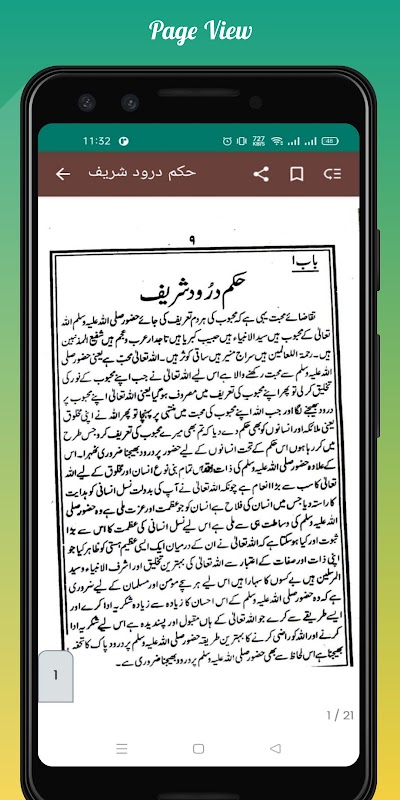 Page View
11:32
727 KB/S
48
حکم درود شریف
۹
باب ۱
حکم درُود شریف
تقاضائے محبت یہی ہے کہ محبوب کی ہر دم تعریف کی جائے حضور صلی اللہ علیہ وسلم اللہ
تعالیٰ کے محبوب ہیں سید الانبیاء ہیں حبیب کبریا ہیں تاجدار عرب و عجم ہیں شفیع المذنبین
ہیں۔ رحمۃ اللعالمین ہیں سراج منیر ہیں ساقی کوثر ہیں۔ اللہ تعالیٰ محب ہے یعنی حضور صلی
اللہ علیہ وسلم سے محبت رکھنے والا ہے اس لیے اللہ تعالیٰ نے جب اپنے محبوب کے نور کی
تخلیق کر لی تو پھر اپنے محبوب کی تعریف میں مصروف ہو گیا یعنی اللہ تعالیٰ اپنے محبوب پر
درود بھیجنے لگا اور جب اللہ اپنے محبوب کی محبت میں منتہٰی پر پہنچا تو پھر اللہ نے اپنی مخلوق
یعنی ملائکہ اور انسانوں کو بھی حکم دے دیا کہ تم بھی میرے محبوب کی تعریف کرو جس طرح
میں کر رہا ہوں اس حکم کے تحت انسانوں کے لیے حضور پر درود بھیجنا ضروری ٹھہرا۔ اس
کے علاوہ حضور صلی اللہ علیہ وسلم کی ذات تمام بنی نوع انسان اور مخلوق کے لیے اللہ
تعالیٰ کا سب سے بڑا انعام ہے چونکہ اللہ تعالیٰ نے آپ کی بدولت نسل انسانی کو ہدایت
کا راستہ دیا جس میں انسان کی فلاح ہے انسان کو جو عظمت اور عزت ملی ہے وہ حضور صلی
اللہ علیہ وسلم کی وساطت ہی سے ملی ہے اس لیے نسل انسانی کی عظمت کا اس سے بڑا
ثبوت اور کیا ہو سکتا ہے کہ اللہ تعالیٰ نے ان کے درمیان ایک ایسی عظیم ہستی کو ظاہر کیا جو
اپنی ذات اور صفات کے اعتبار سے اللہ تعالیٰ کی بہترین تخلیق اور اشرف الانبیاء و سید
المرسلین ہیں بے کسوں کا سہارا ہیں اس لیے ہر بچے مومن اور مسلمان کے لیے ضروری
ہے کہ وہ حضور صلی اللہ علیہ وسلم کے اس احسان کا زیادہ سے زیادہ شکریہ ادا کرے اور
ایسے طریقے سے کرے جو اللہ تعالیٰ کے ہاں مقبول اور پسندیدہ ہے اس لیے شکریہ ادا
کرنے اور اللہ کو راضی کرنے کا بہترین طریقہ حضور صلی اللہ علیہ وسلم پر درود پاک کا تحفہ
بھیجنا ہے اس لحاظ سے بھی حضور صلی اللہ علیہ وسلم پر درود بھیجنا ضروری ہے۔
1
1 / 21